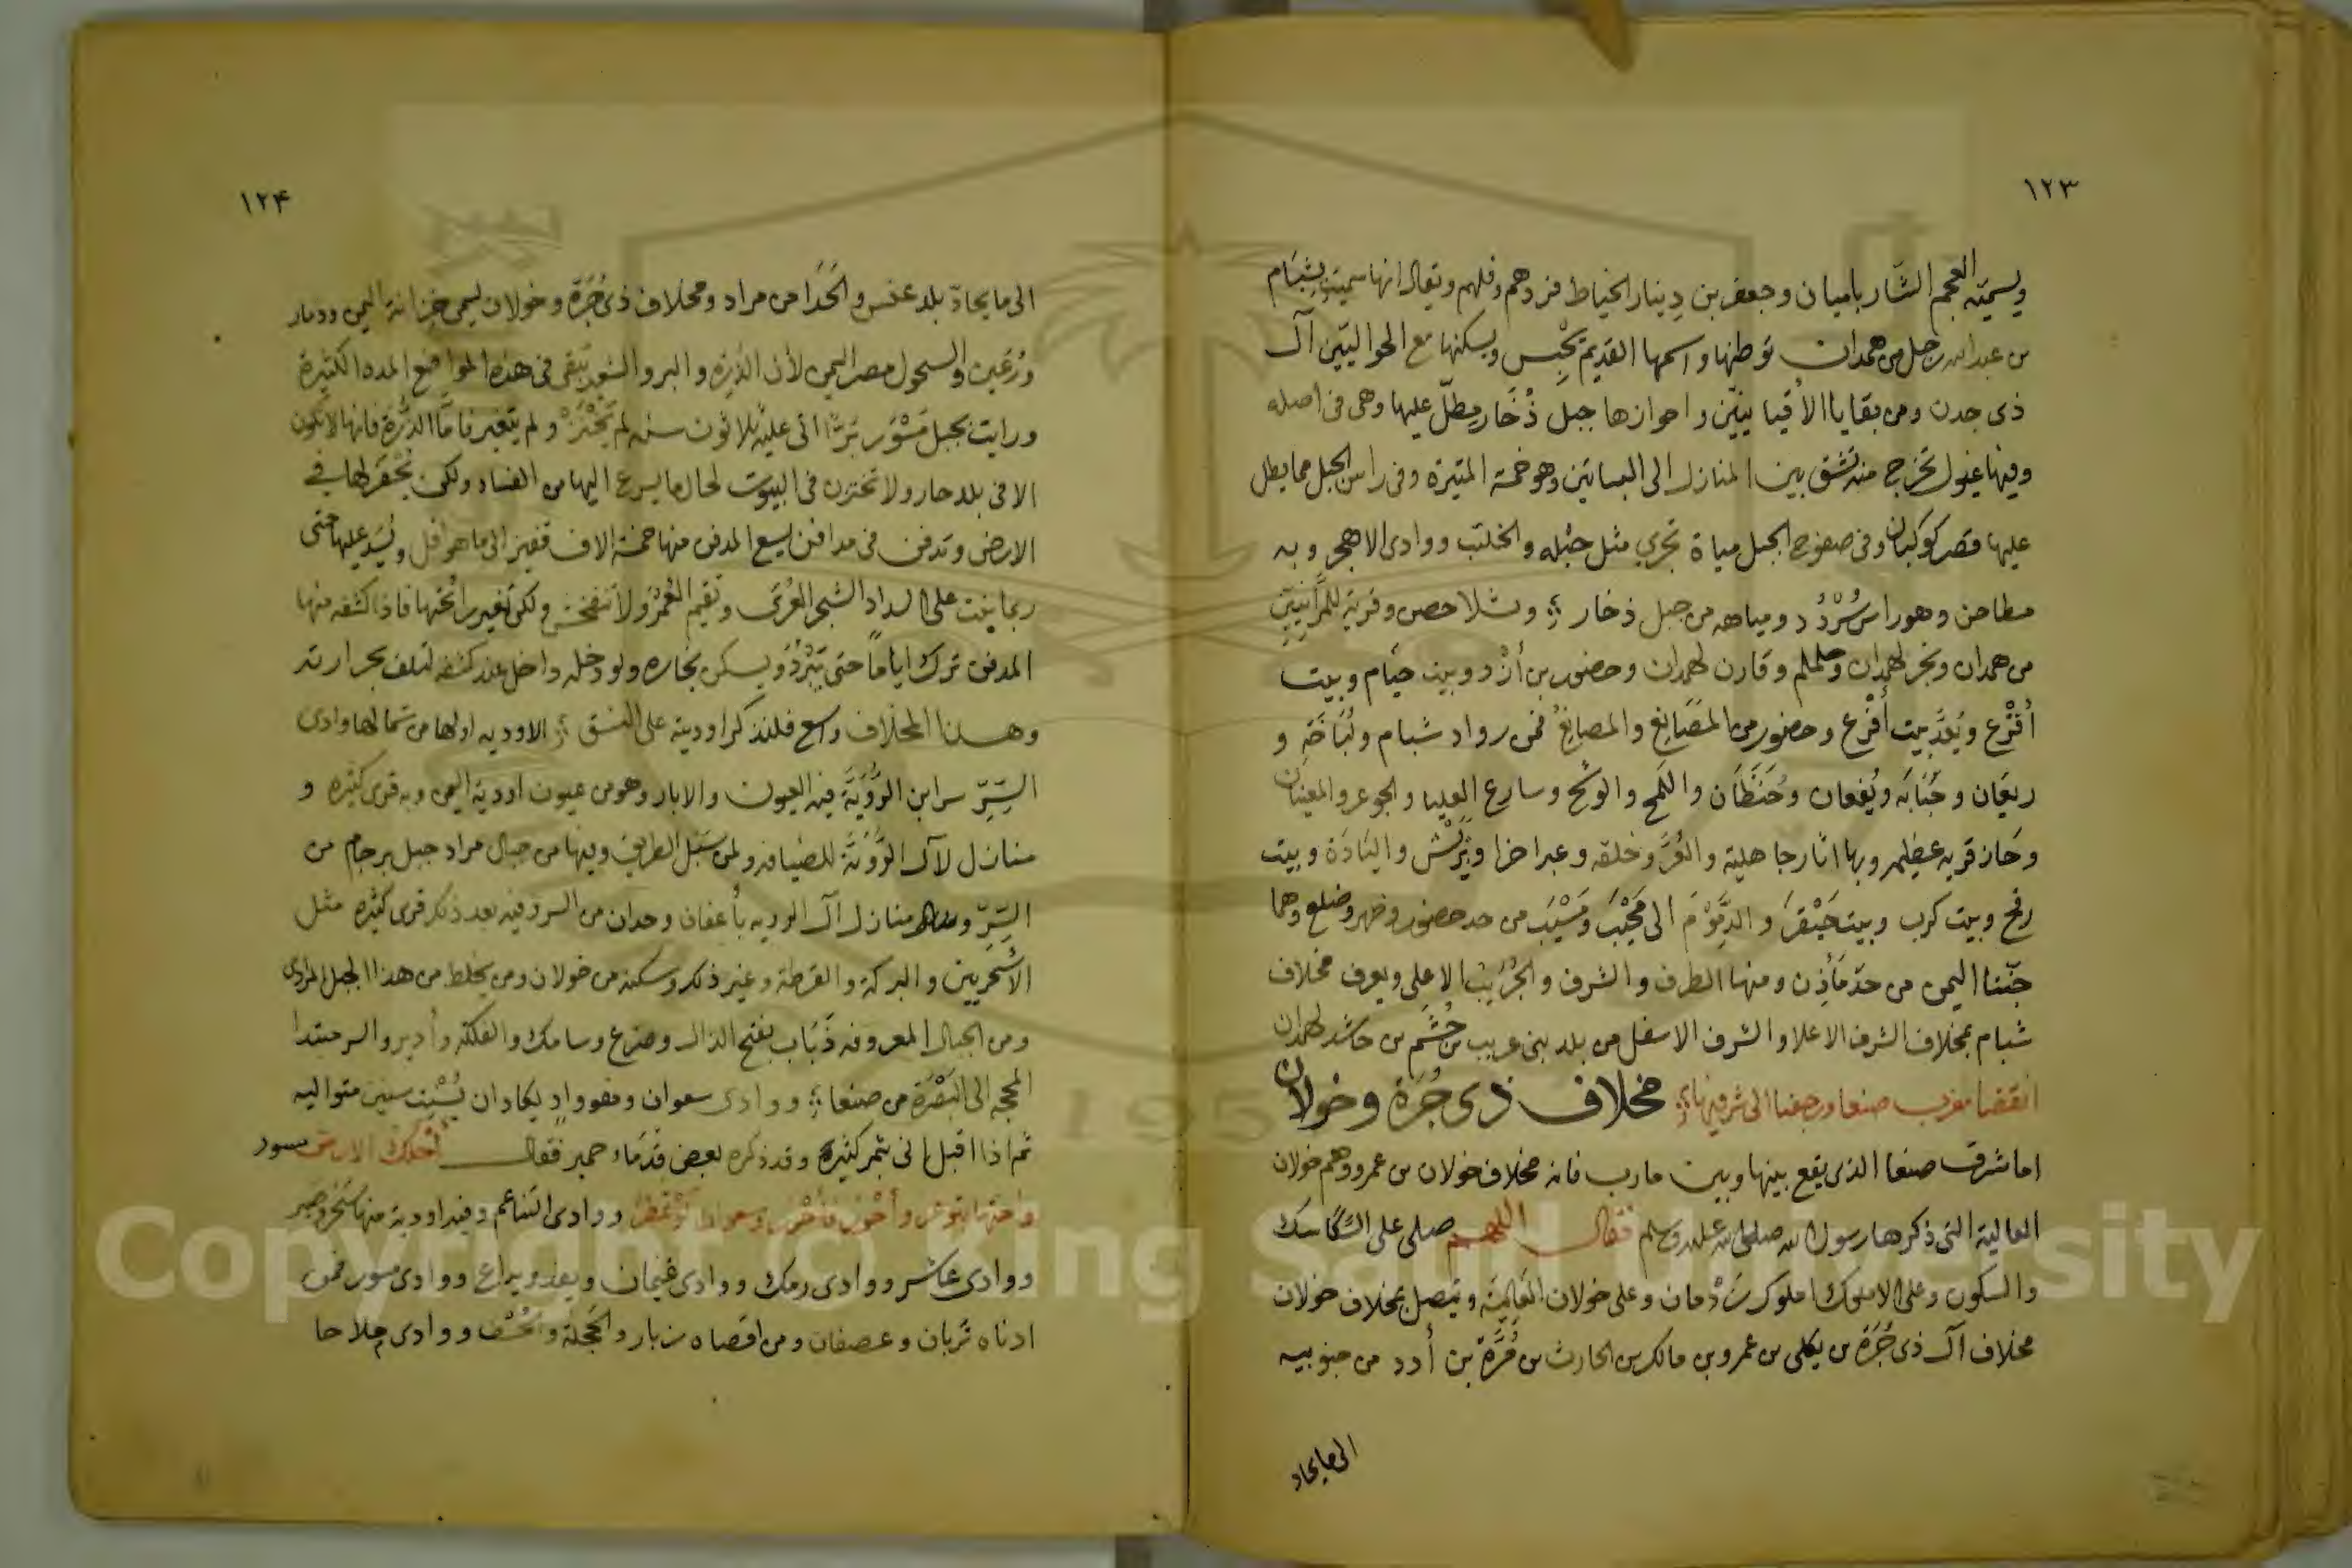 ١٢٣
ويسميه العجم الشار باميان وجعفر بن دينار الخياط فردهم وفلهم ويقال انها سميت بشِبَام
بن عبد الله رجل من همدان توطنها واسمها القديم يَحْبِس ويسكنها مع الحواليّين آل
ذى جدن ومن بقايا الأقيانيّين واحوازها جبل ذُخَار مطلّ عليها وهى فى اصله
وفيها غيول تخرج منه تشق بين المنازل الى البساتين وهو خمة المتيرة وفى راس الجبل مما يطل
عليها قصر كوكبان وفى صفوح الجبل مياة تجري مثل حبْله والخلتب ووادى الاهجر وبه
مطاحن وهو راس سُرْدُد ومياهه من جبل ذخار وشلا حصن وقرية للمرّانيين
من همدان ونجر لهمدان وحلملم وقارن لهمدان وحضور بن أزْد وبيت خيام وبيت
أقْرع ويُعَدّ بيت أقرع وحضور من المصَانِع والمصانع فمن رواد شبام ولُبَاخَة و
ريعَان وحَبَابَه ويُفعان وحَنَظَان واللمح والوكح وسارع العليا والجوعر والمعينان
وحَاز قريه عظيمه وبها اثار جاهلية والعُرّ وخلقه وعبرا خرا ويَرْش والبَادَة وبيت
رفح وبيت كرب وبيت حَبْقرَ والدَّوْمَ الى محْيَبَ ومَسْيَب من حد حضور وضهر وضلع وهما
جنّتا اليمن من حدّ مَأذِن ومنها الطرف والشرف والجُرَيْب الاعلى ويعرف مخلاف
شبام بمخلاف الشرف الاعلا والشرف الاسفل من بلد بنى عريب من جُشَم بن حاشد لهمدان
انقضا مغرب صنعا ورجعنا الى شرقيها مخلاف ذى جُرَة وخولان
اما شرق صنعا الذى يقع بينها وبين مارب فانه مخلاف خولان بن عمرو وهم خولان
العالية التى ذكرها رسول الله صلى الله عليه وسلم فقال اللهم صلى على السَّكَاسك
والسكون وعلى الاملوك املوك رَدْمان وعلى خولان العَالِيَة ويتصل بمخلاف خولان
مخلاف آل ذى جُرَة بن يكلى بن عمرو بن مالك بن الحارث بن مُرَّة بن أدد من جنوبيه
الى مايحاد
١٢۴
الى مايحادّ بلد عنس والحَدَا من مراد ومخلاف ذى جُرَة وخولان يسمى خزانة اليمن وذمار
ورُعَين والسحول مصر اليمن لأن الذُرة والبر والشعير يَبقى فى هذه المواضع المدة الكثيرة
ورايت بجبل مَسْوَر بُرّا اتى عليه ثلاثون سنه لم يَخْنَزْ ولم يتغير فامّا الذُّرَة فانها لا تكون
الا فى بلد حار ولا تختزن فى البيوت لحال ما يسرع اليها من الفساد ولكن يُحْفَر لها فى
الارض وتدفن فى مدافن يسع المدفن منها خمسة الاف قفيز الى ما هو اقل ويُسَد عليها حتى
ربما ينبت على السداد الشجر العُرَى وتقيم العُمُرَ ولا تنفخش ولكن تغير رائحتها فاذا كشفه منها
المدفن ترك ايامًا حتى يَبْرُدَ ويسكن بخاره ولو دخله داخل عند كشفه لتلف بحرارته
وهذا المخلاف واسع فلنذكر اوديته على النسق الاوديه اولها من شمالها وادى
السِّرّ سر ابن الرُّوَيَّة فيه العيون والابار وهو من عيون اودية اليمن وبه قرى كثيره و
منازل لآل الرُّوَيَّة للضيافه ولمن سَبَل الطريق وفيها من جبال مراد جبل برجام من
السِّرّ ومنازل آل الرويه بأعفاف وحدان من السر وفيه بعد ذلك قرى كثيره مثل
الأشحَريين والبركة والقرطة وغير ذلك وسكنه من خولان ومن يخلط من هذا الجبل المرادى
ومن الجبال المعروفه ذَبَاب بفتح الذال وصرع وسامك والفلكة وأدير والسر مبتدا
المحجه الى البَصْرَة من صنعا ووادى سعوان وهو وادٍ يكاد ان يُسْنِت سنين متواليه
ثم اذا اقبل اتى بثمر كثيره وقد ذكره بعض قدَمَاء حمير فقال الارض سور
ووادى التناعم وفيه اودية منها
ووادى عاشر ووادى رمك ووادى غيمان ويفد ويراع ووادى مسور فمن
ادناه ثربان وعصفان ومن اقصاه زبار والحَجلَة ووادى ملاحا